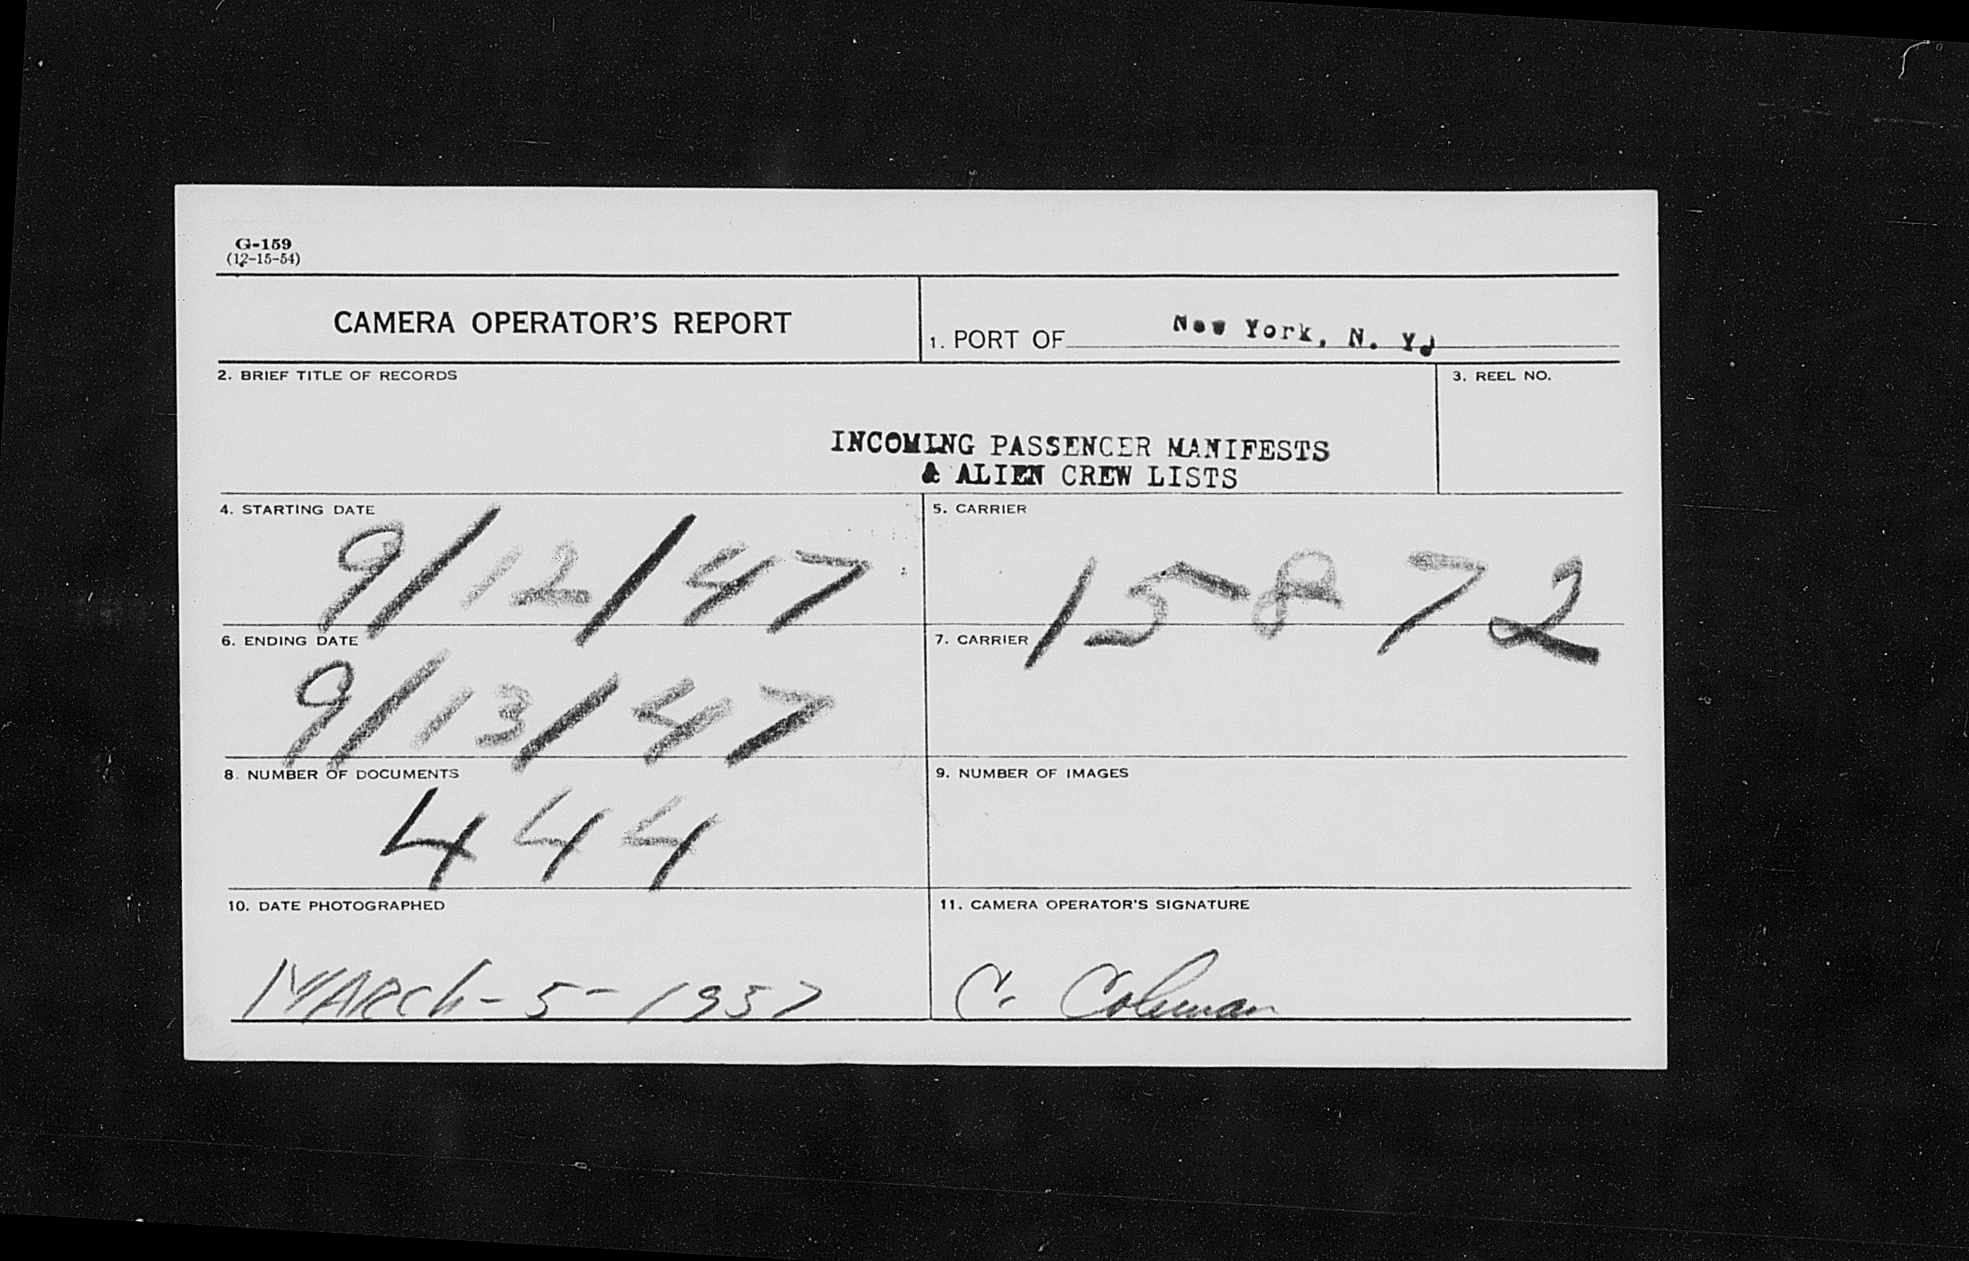 G-159
(12-15-54)
CAMERA OPERATOR'S REPORT
1. PORT OF New York, N. Y.
2. BRIEF TITLE OF RECORDS
3. REEL NO.
INCOMING PASSENGER MANIFESTS
& ALIEN CREW LISTS
4. STARTING DATE
9/12/47
5. CARRIER
15872
6. ENDING DATE
9/13/47
7. CARRIER
8. NUMBER OF DOCUMENTS
444
9. NUMBER OF IMAGES
10. DATE PHOTOGRAPHED
MARCH-5-1957
11. CAMERA OPERATOR'S SIGNATURE
C. Coleman